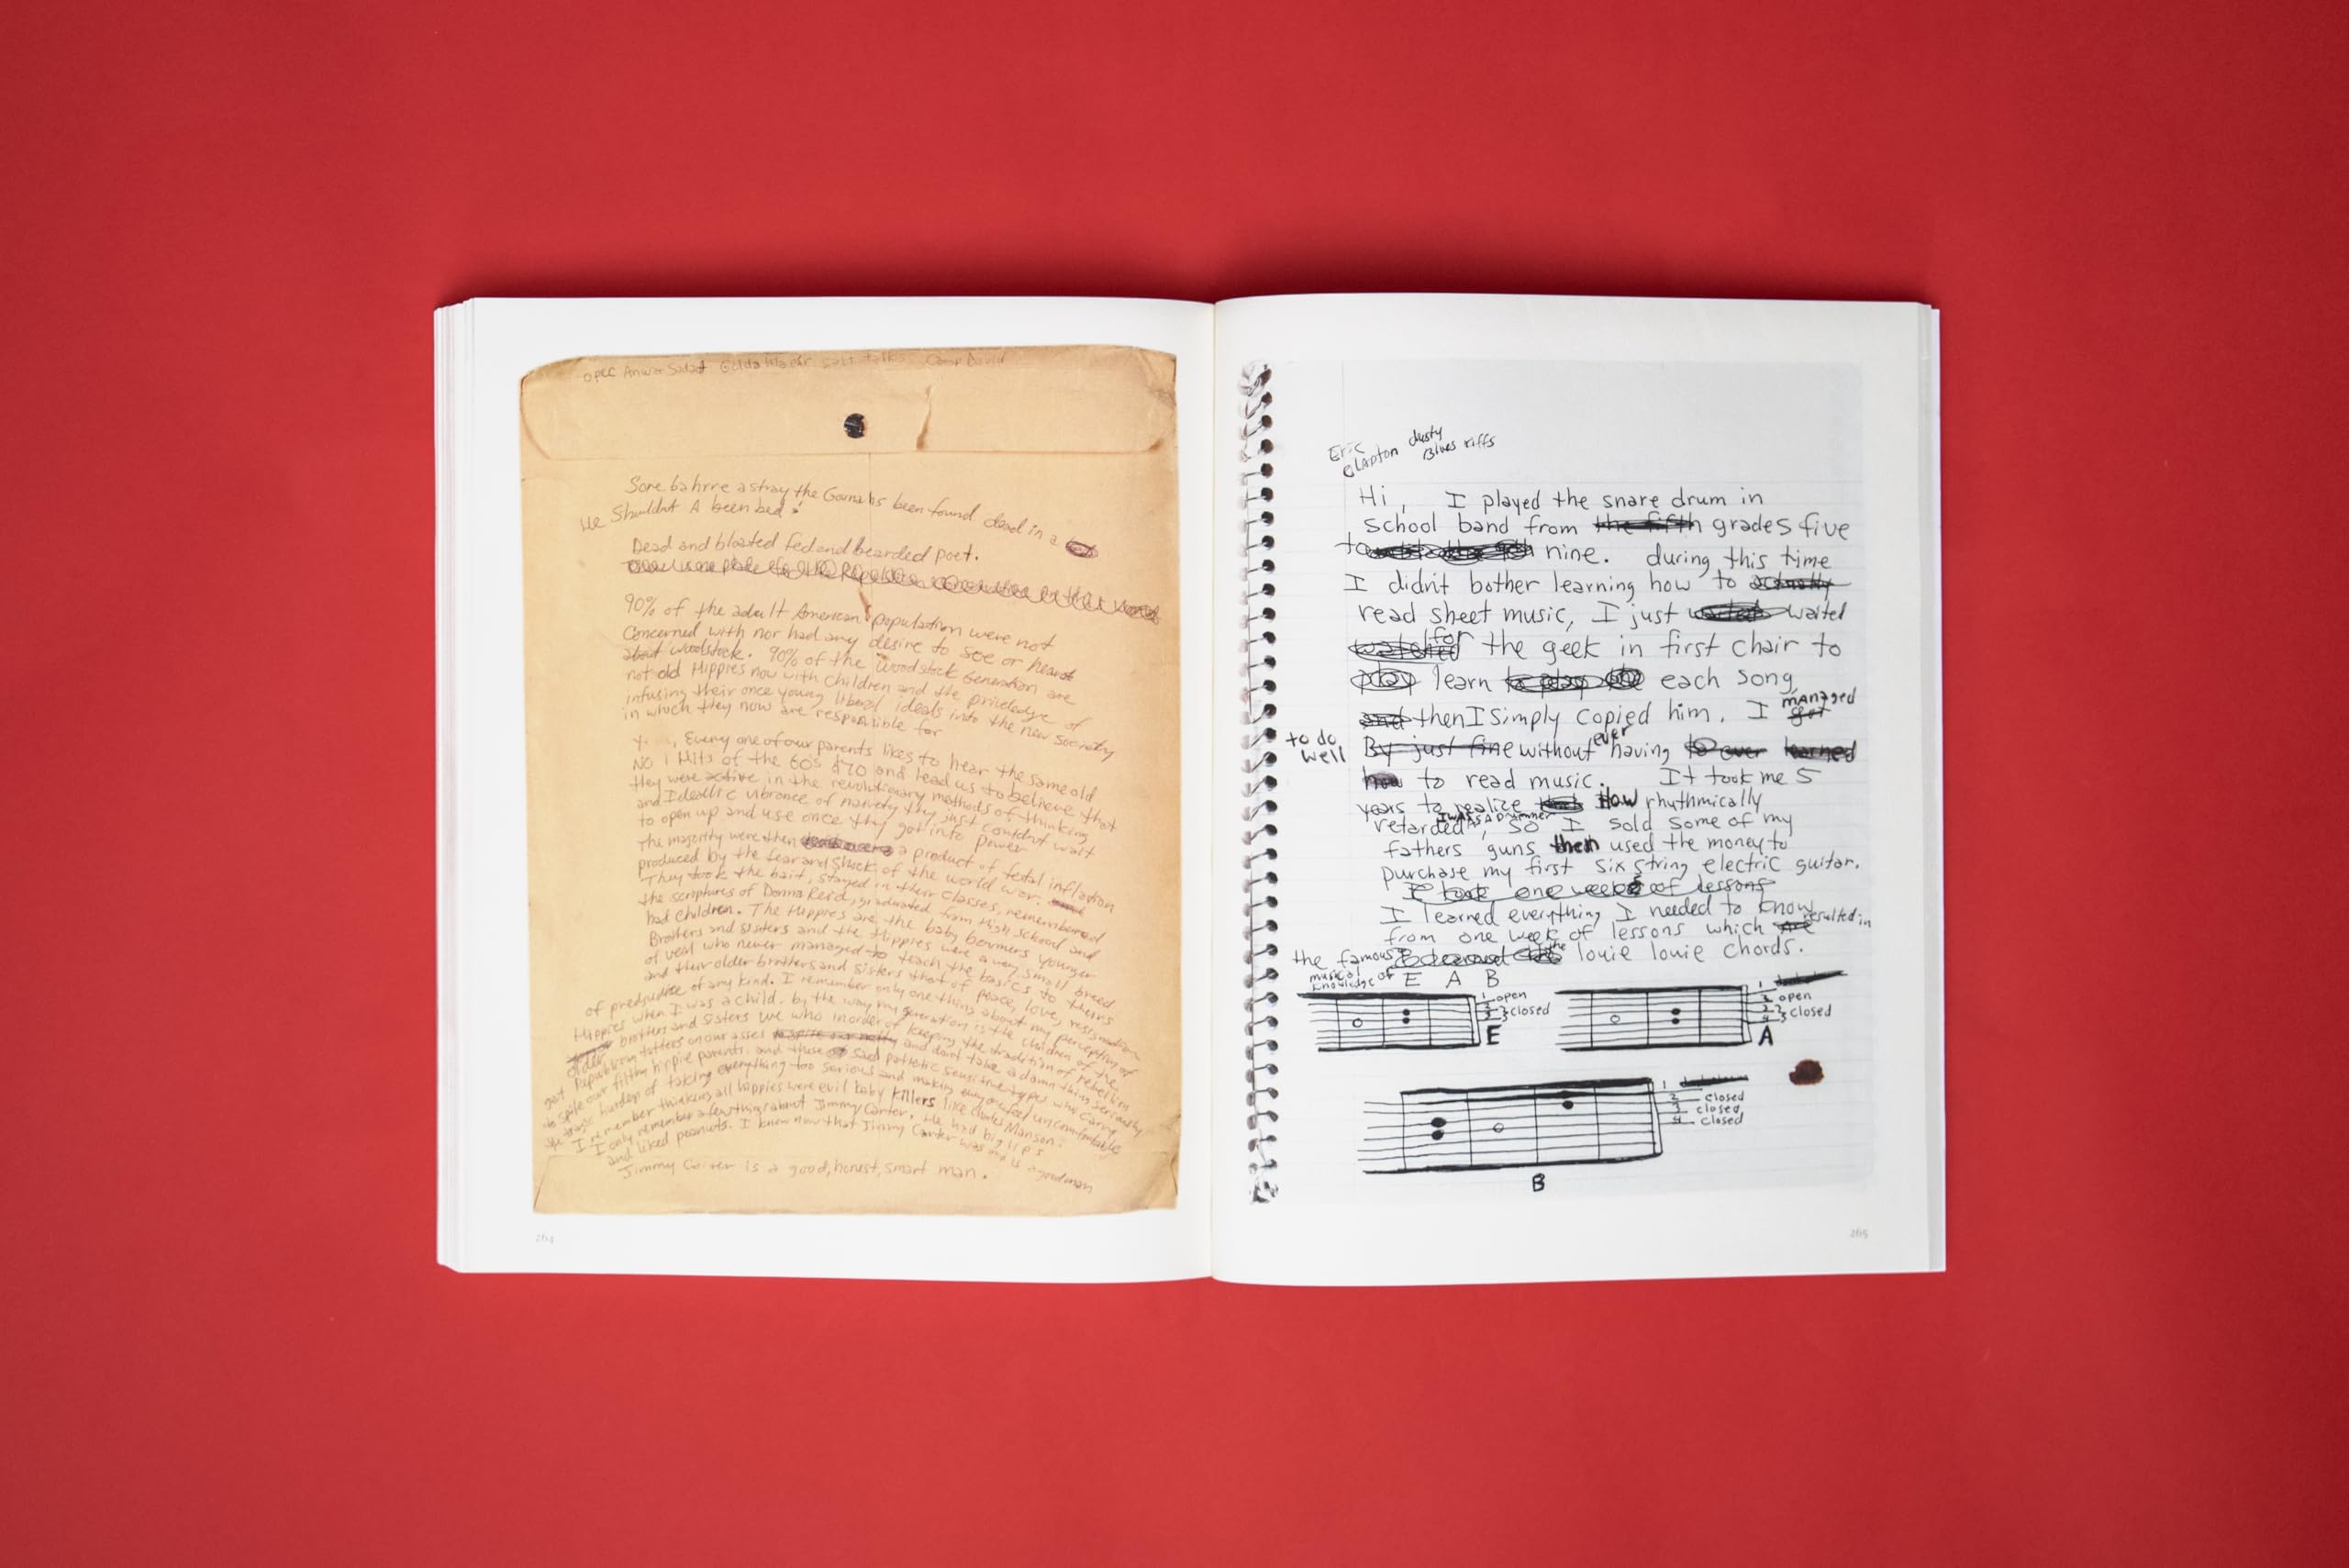 OPEC Anwar Sadat Golda Maeir salt talks Camp David
been found dead in a
He Shouldnt A been bad.
Dead and bloated fed and bearded poet.
90% of the adult American population were not
Concerned with nor had any desire to see or
about woodstock. 90% of the woodstock Generation are
not old Hippies now with children and the priveledge of
infusing their once young liberal ideals into the new society
in which they now are responsible for
Every one of our parents likes to hear the same old
No 1 Hits of the 60s & 70 and lead us to believe that
they were active in the revolutionary methods of thinking
and Ideallic vibrance of naivety they just couldnt wait
to open up and use once they got into power
The majority were then a product of fetal inflation
produced by the fear and shock of the world war.
They took the bait, stayed in their classes, remembered
the scriptures of Donna Reid, graduated from High school and
had children. The Hippies are the baby boomers younger
Brothers and sisters and the Hippies were a very small breed
of veal who never managed to teach the basics to theirs
and their older brothers and sisters that of peace, love,
of predjudice of any kind. I remember only one thing about my perception of
Hippies when I was a child. by the way my generation is the children of the
brothers and sisters we who in order of keeping the tradition of rebellion
Republican totters on our asses and dont take a damn thing seriously
to spite our filthy hippie parents. and those sad pathetic sensitive types who carry
the tragic burden of taking everything too serious and making everyone feel uncomfortable
I remember thinking all hippies were evil baby killers like Charles Manson.
I only remember a few things about Jimmy Carter. He had big lips
and liked peanuts. I know now that Jimmy Carter was and is a good man
Jimmy Carter is a good, honest, smart man.
264
Eric Clapton dusty Blues riffs
Hi, I played the snare drum in
School band from the fifth grades five
to nine. during this time
I didn't bother learning how to actually
read sheet music, I just waited
watched for the geek in first chair to
play learn to play the each song
and then I simply copied him. I managed
to do well By just fine without ever having to ever learned
how to read music. It took me 5
years to realize How rhythmically
retarded I was as a Drummer, so I sold some of my
fathers guns then used the money to
purchase my first six string electric guitar.
I took one weeks of lessons
I learned everything I needed to know
from one week of lessons which resulted in
the famous musical knowledge of the louie louie chords.
E A B
1 open
2 closed
3
E
1
2 open
3 closed
4
A
1
2 closed
3 closed
4 closed
B
265